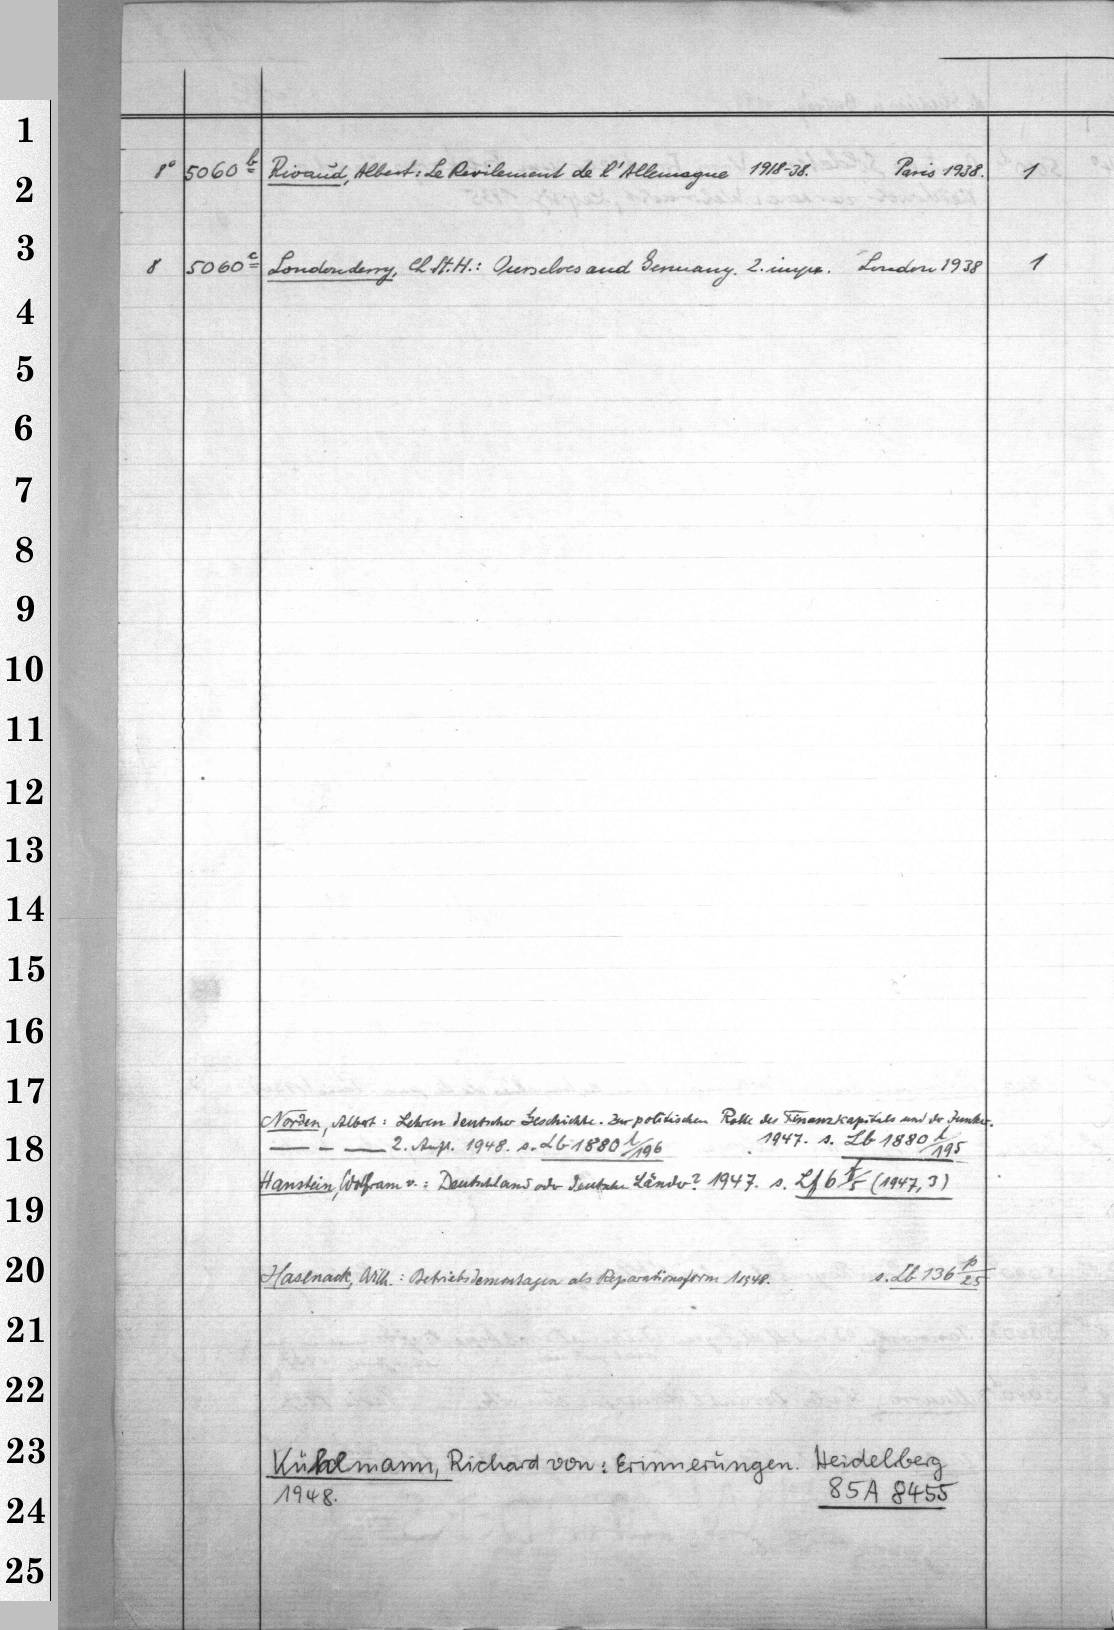 1
2
3
4
5
6
7
8
9
10
11
12
13
14
15
16
17
18
19
20
21
22
23
24
25
8° 5060 b Rivaud, Albert: Le Revilement de l'Allemagne 1918-38. Paris 1938. 1
8 5060 c Londonderry, Ch. St. H.: Ourselves and Germany. 2. impr. London 1938 1
Norden, Albert: Lehren deutscher Geschichte. Zur politischen Rolle des Finanzkapitals und der Junker.
— – — 2. Aufl. 1948. s. Lb 1880 l/196 1947. s. Lb 1880 l/195
Hanstein, Wolfram v.: Deutschland oder deutsche Länder? 1947. s. Lf 6 /5 (1947, 3)
Hasenack, Wilh.: Betriebsdemontagen als Reparationsform 1948. s. Lb 136 p/25
Kühlmann, Richard von: Erinnerungen. Heidelberg
1948. 85A 8455